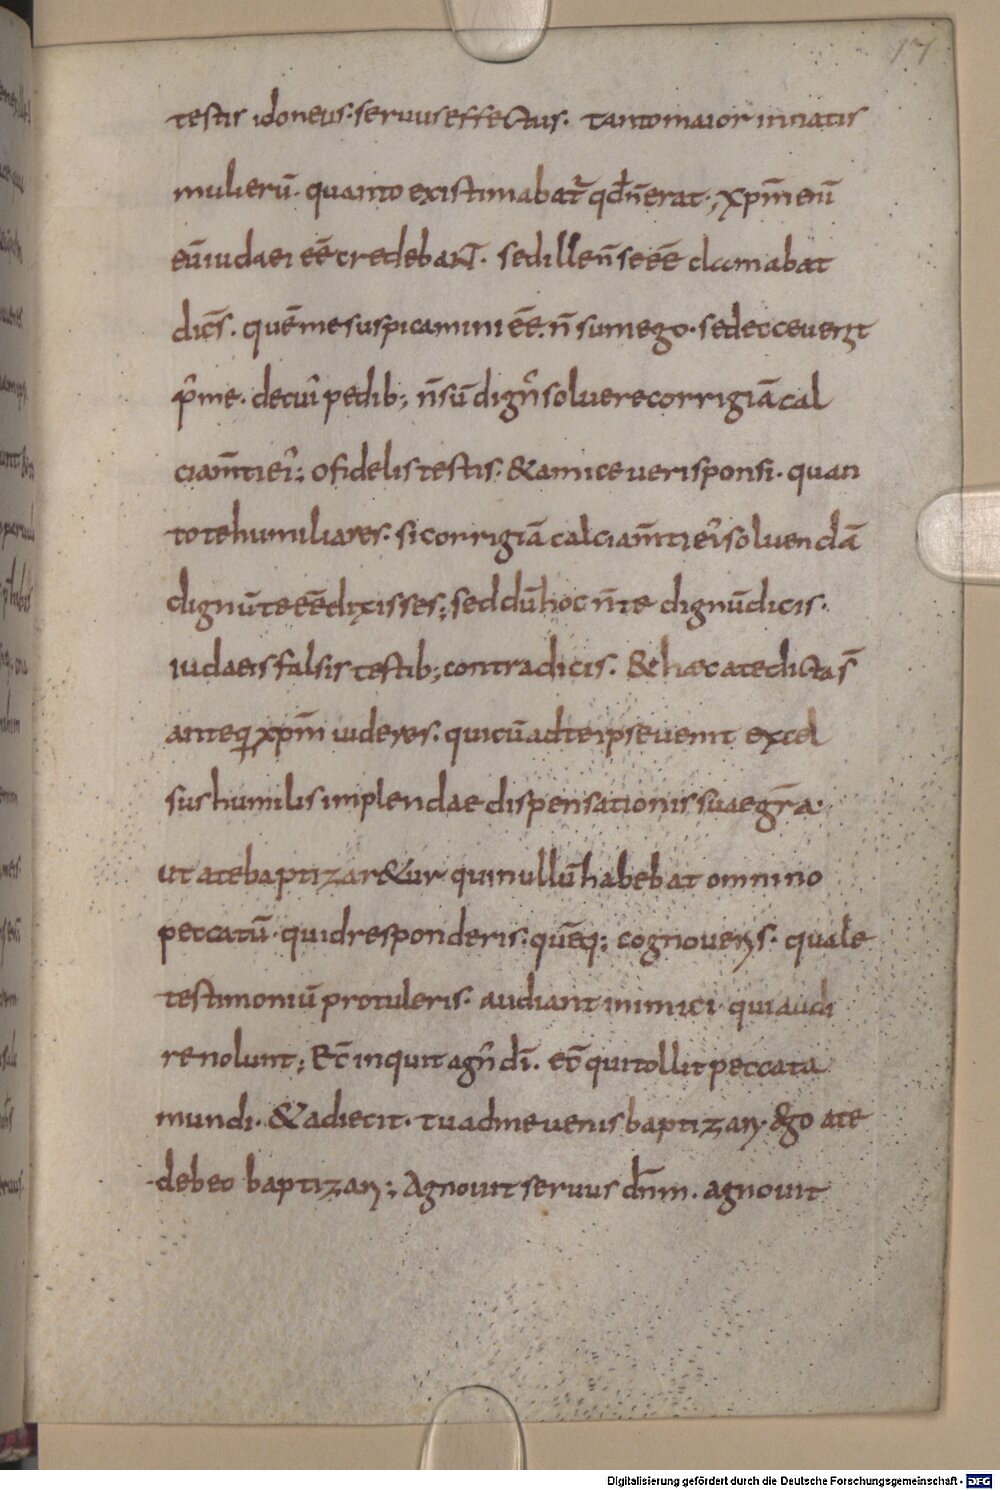 17
testis idoneus· seruus effectus· tanto maior in natis
mulierū· quanto existimabat̄ qd̄ n̄ erat·, xp̄m enī
eū iudaei eē credebant· sed ille n̄ se eē clamabat
dicēs· quē me suspicamini eē· n̄ sum ego· sed ecce uenit
p̄ me· decui' pedib; n̄ sū dign' soluere corrigiā cal
ciam̄ti ei'; o fidelis testis· & amice ueri sponsi· quan
to te humiliares· si corrigiā calciam̄ti ei' soluendā
dignū te eē dixisses; sed dū hoc n̄ te dignū dicis·
iudaeis falsis testib; contradicis· & haec a te dicta s̄
anteq xp̄m uideres· qui cū ad te ipse uenit excel
sus humilis implendae dispensationis suae gr̄a·
ut a te baptizar&ur qui nullū habebat omnino
peccatū· quid responderis· quēq; cognoueris· quale
testimoniū protuleris· audiant inimici qui audi
re nolunt; Ecc̄ inquit agn' dī· ecc̄ qui tollit peccata
mundi· & adiecit· tu ad me uenis baptizari· ego a te
debeo baptizari; Agnouit seruus dn̄m· agnouit
Digitalisierung gefördert durch die Deutsche Forschungsgemeinschaft - DFG